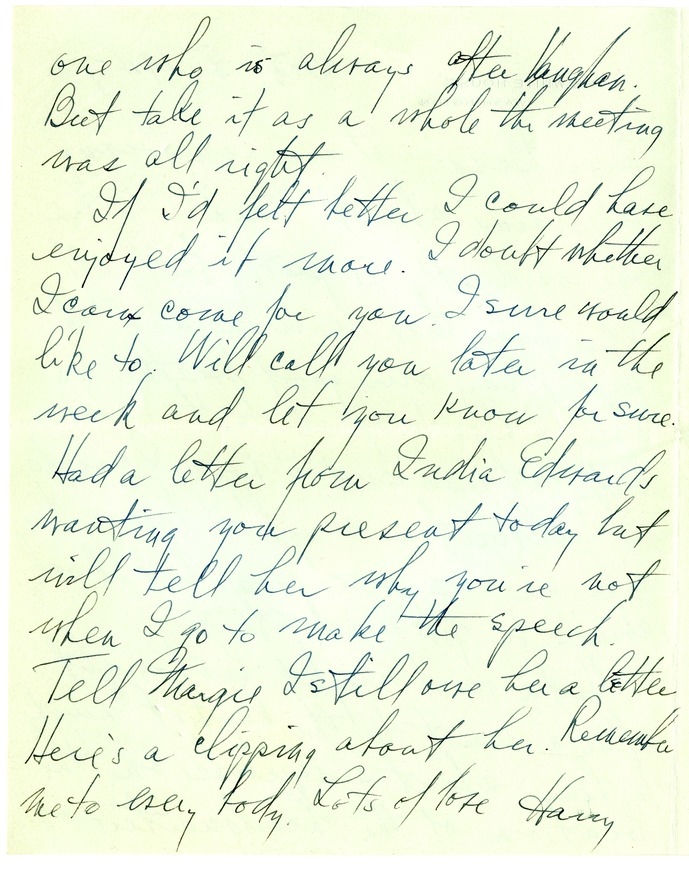 one who is always after Vaughan.
But take it as a whole the meeting
was all right.
If I'd felt better I could have
enjoyed it more. I doubt whether
I can come for you. I sure would
like to. Will call you later in the
week and let you know for sure.
Had a letter from India Edwards
wanting you present today but
will tell her why you're not
when I go to make the speech.
Tell Margie I still owe her a letter
Here's a clipping about her. Remember
me to every body. Lots of love Harry